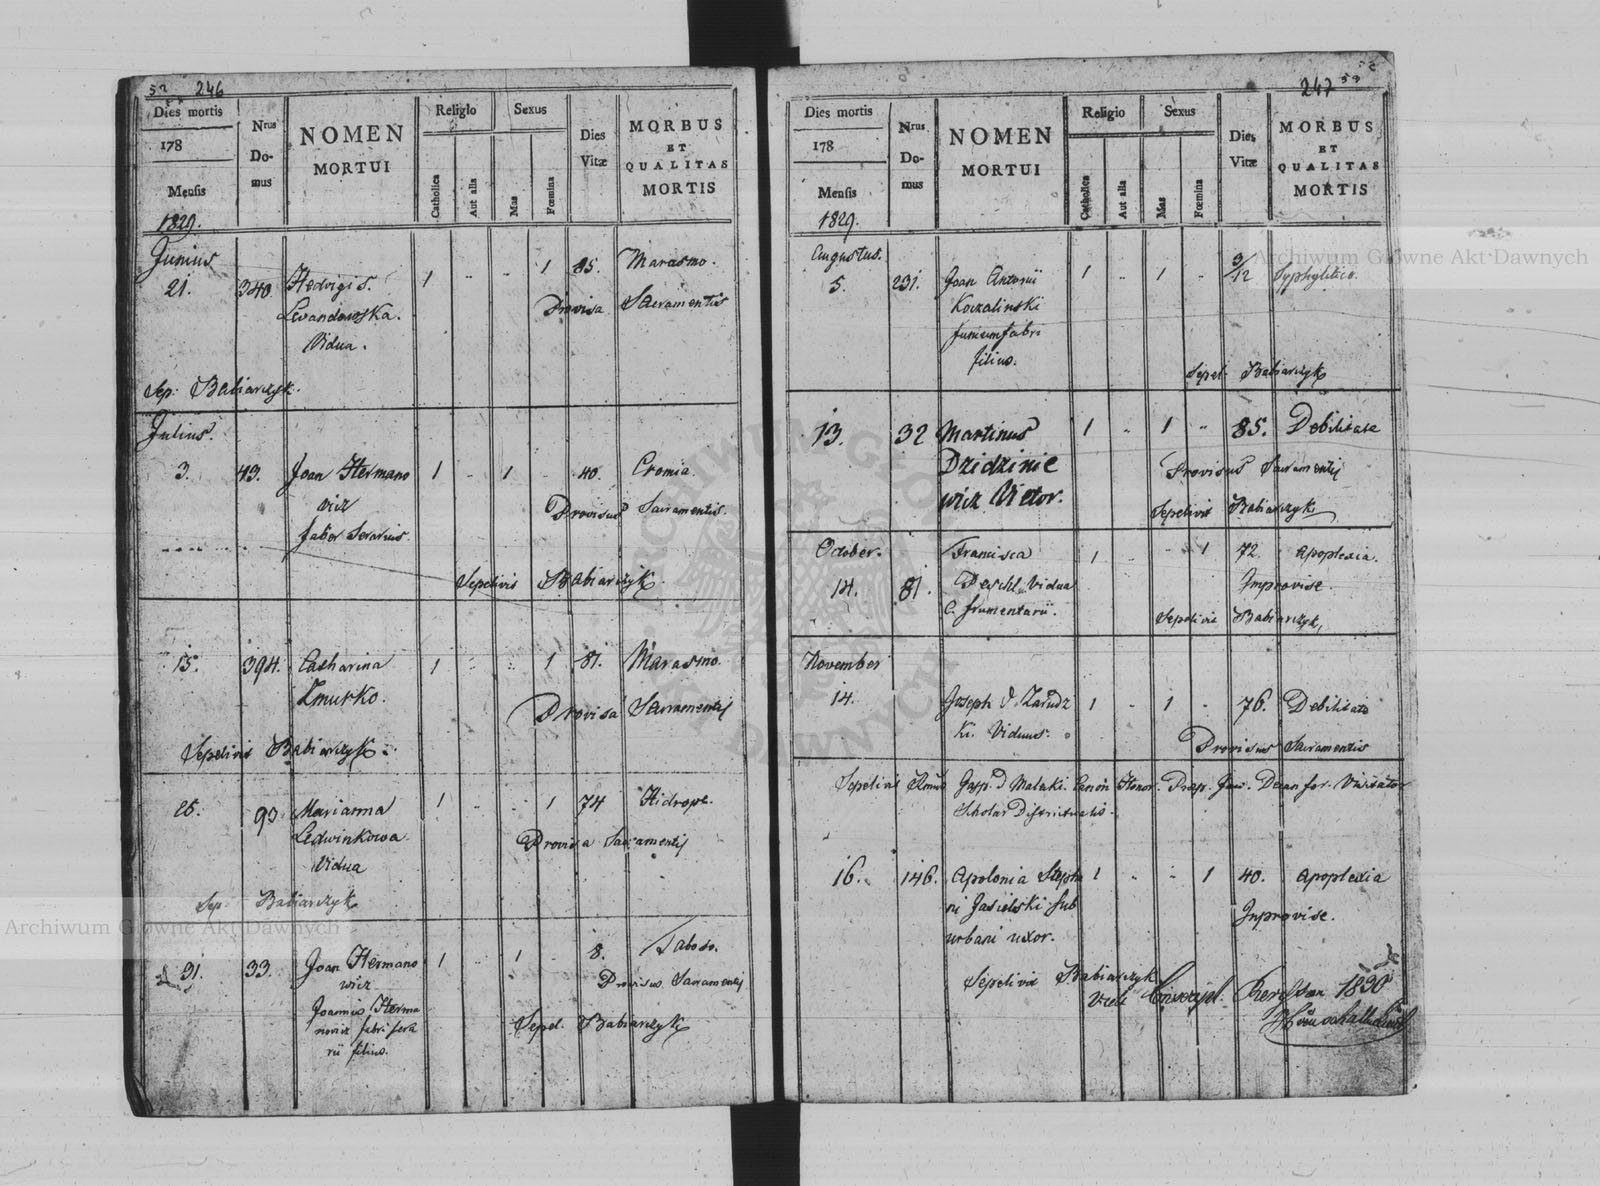 52 246
Dies mortis
178
Mensis
1829.
Nrus Domus
NOMEN
MORTUI
Religio
Catholica
Aut alia
Sexus
Mas
Fœmina
Dies Vitæ
MORBUS
ET
QUALITAS
MORTIS
Junius
21. 340. Hedvigis 1 " " 1 85. Marasmo.
Levandowska. Provisa Sacramentis
Vidua.
Sep: Babiarczyk.
Julius.
3. 43. Joan Hermano 1 " 1 40.
vicz Provisus Sacramentis.
faber Serarius.
Sepelivit Babiarczyk.
15. 394. Catharina 1 " " 1 81. Marasmo.
Zmurko. Provisa Sacramentis
Sepelivit Babiarczyk.
90 Marianna 1 " " 1 74 Hidrope.
Ledwinkowa Provisa Sacramentis
Vidua
Sep. Babiarczyk
31. 33. Joan Hermano 1 1 8. Tabo
wicz Provisus Sacramentis
Joannis Herma
novicz fabri Sera
rii filius.
Sepel. Babiarczyk
247 59
Dies mortis
178
Mensis
1829.
Nrus Domus
NOMEN
MORTUI
Religio
Catholica
Aut alia
Sexus
Mas
Fœmina
Dies Vitæ
MORBUS
ET
QUALITAS
MORTIS
Augustus.
5. 231. Joan Antonii 1 " 1 " 3/12 Syphylitico.
Koczalinski
filius.
Sepel. Babiarczyk
13. 32 Martinus 1 " 1 " 85. Debilitate
Dzidzinie Provisus Sacramentis
wicz Vietor.
Sepelivit Babiarczyk
October. Francisca 1 " " 1 72. Apoplexia.
14. 81. Vidua Improvise.
C. frumentarii.
Sepelivit Babiarczyk
November
14. Joseph 1 " 1 " 76. Debilitate
ki. Viduus. Provisus Sacramentis
Sepelivit Honor.
16. 146. Apolonia Steph 1 " " 1 40. Apoplexia
ni Jasielski Sub Inprovise.
urbani uxor.
Sepelivit Babiarczyk
1830
Archiwum Główne Akt Dawnych
Archiwum Główne Akt Dawnych
ARCHIWUM GŁÓWNE AKT DAWNYCH